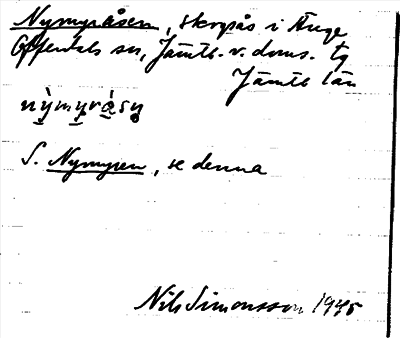 Nymyråsen, skogsås i Ånge
Offerdals sn, Jämtl. v. doms. tg
Jämtl. län
nỳmyràsn̥
S. Nymyren, se denna
Nils Simonsson 1945